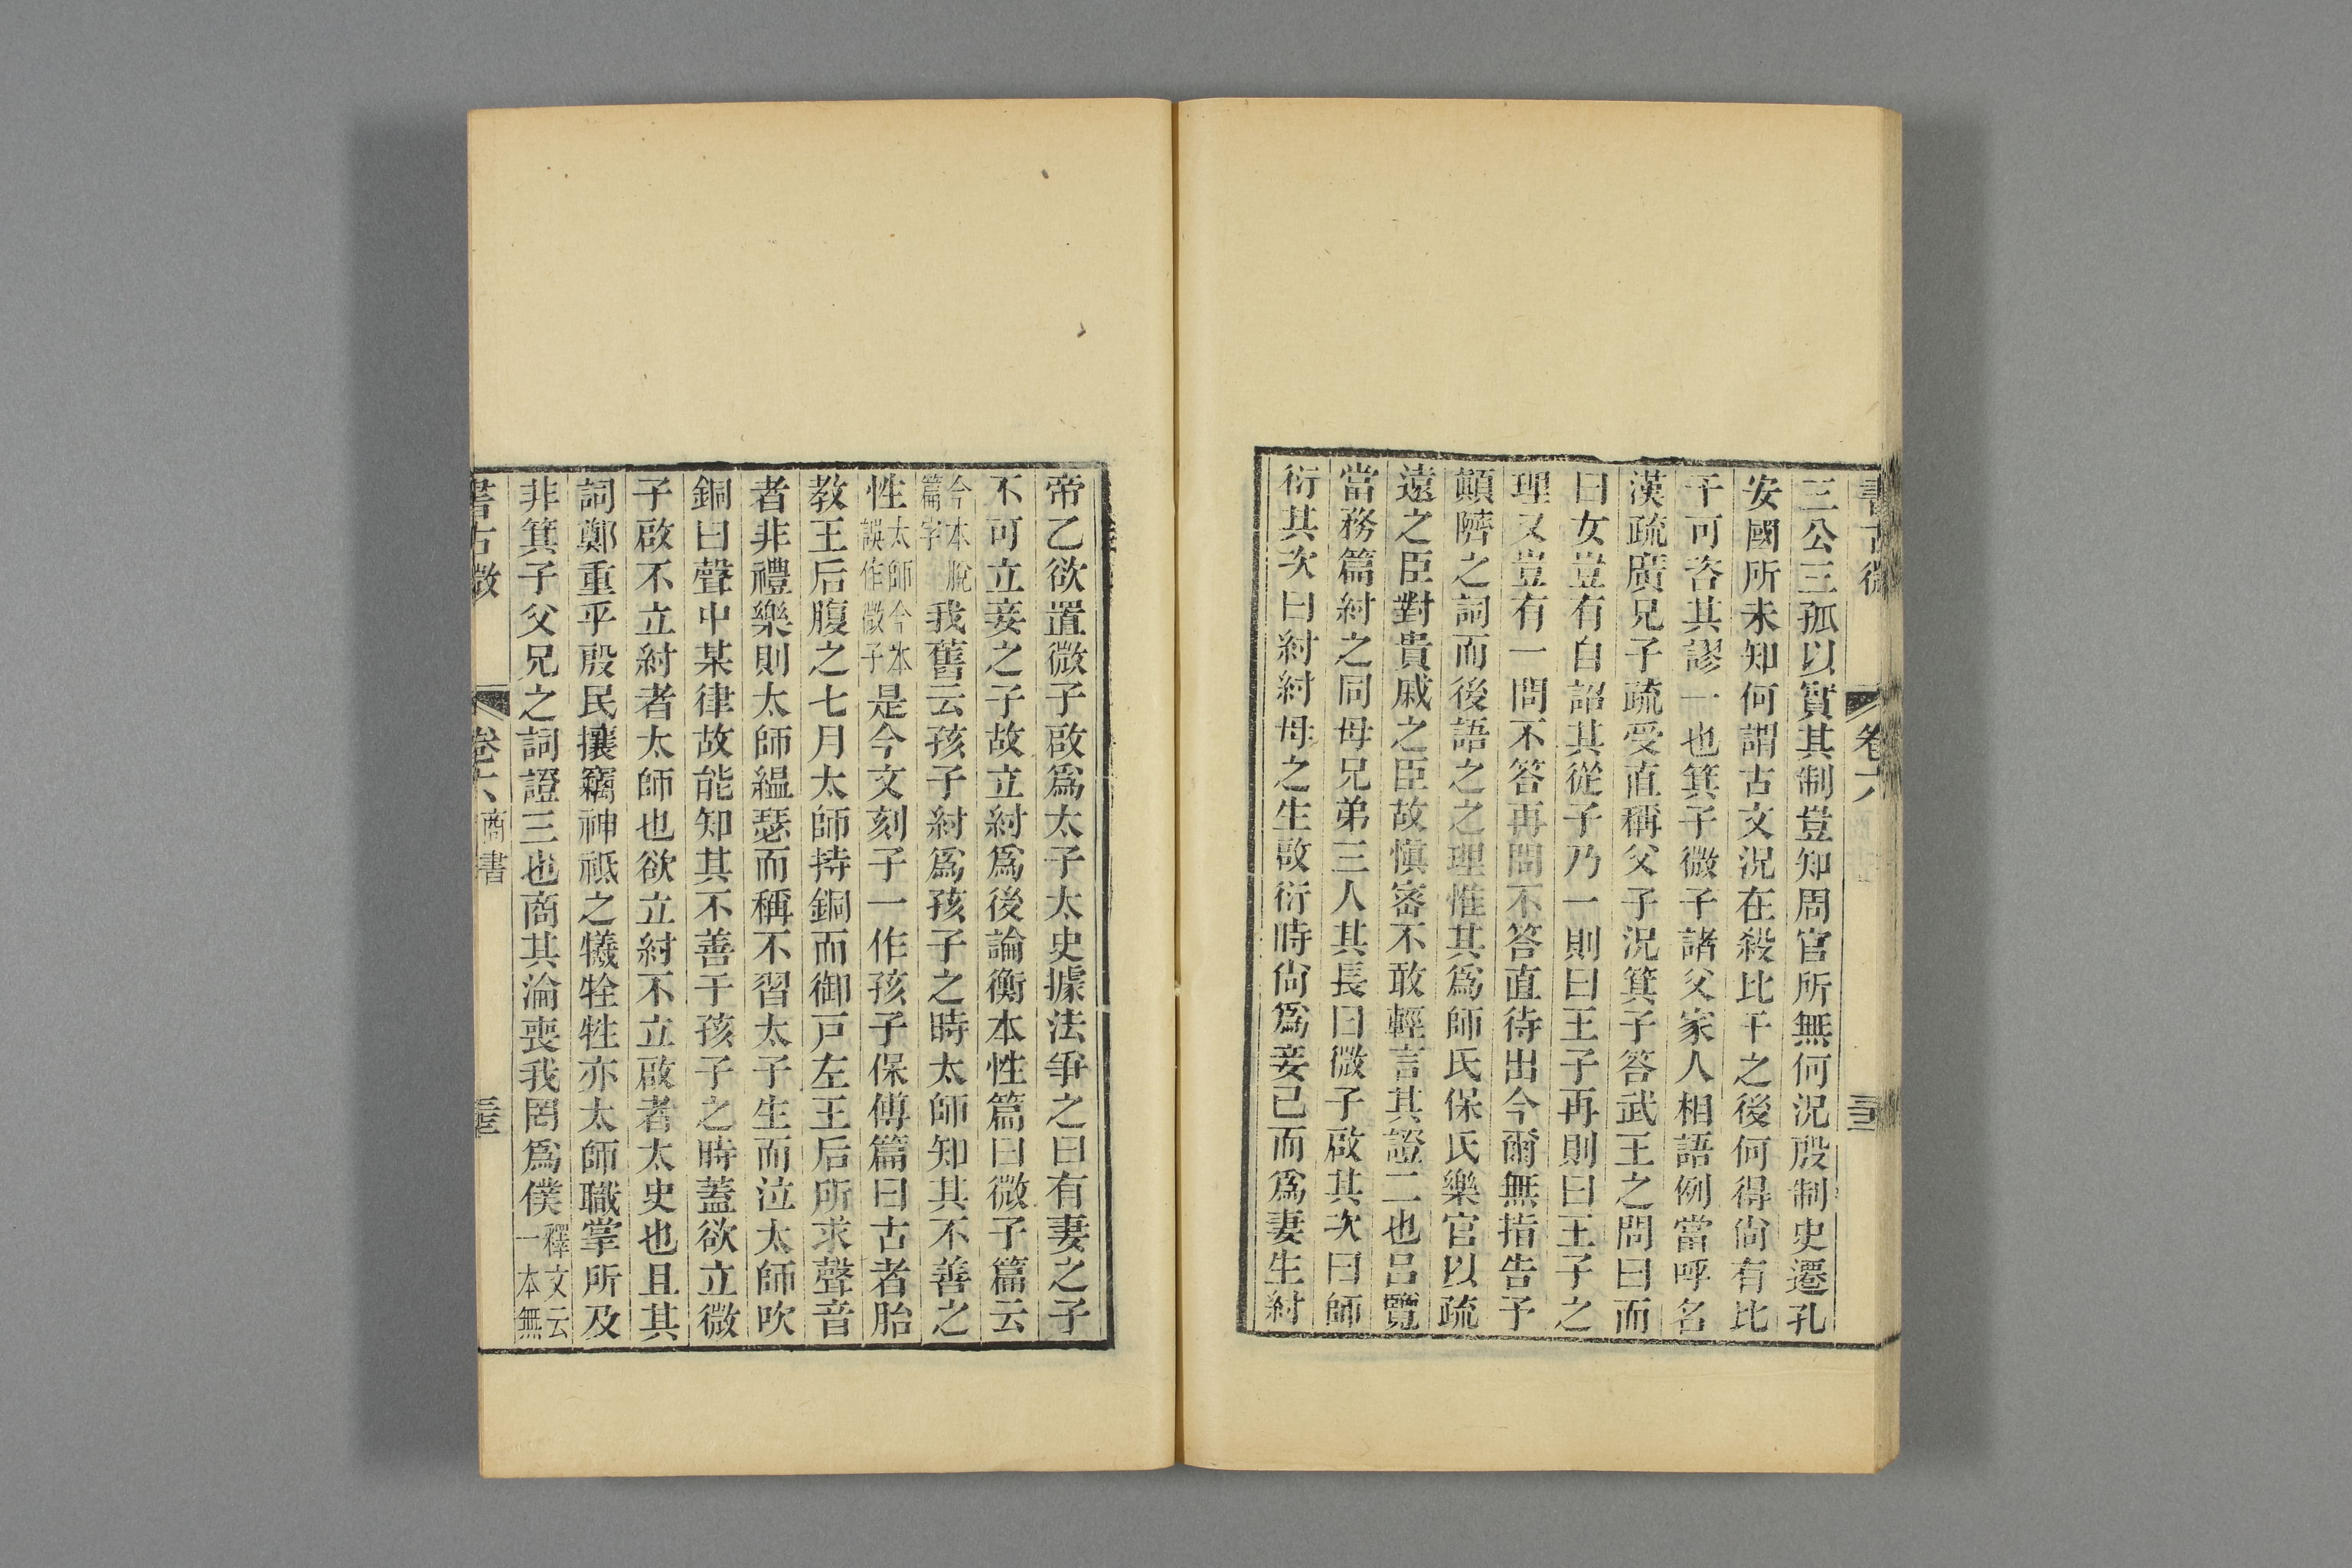 書古微 卷六
三公三孤以實其制豈知周官所無何況殷制史遷孔
安國所未知何謂古文況在殺比干之後何得尙有比
干可咨其謬一也箕子微子諸父家人相語例當呼名
漢疏廣兄子疏受直稱父子況箕子答武王之問曰而
曰女豈有自詔其從子乃一則曰王子再則曰王子之
理又豈有一問不答再問不答直待出今爾無指告予
顛隮之詞而後語之之理惟其爲師氏保氏樂官以疏
遠之臣對貴戚之臣故慎審不敢輕言其證二也呂覽
當務篇紂之同母兄弟三人其長曰微子啟其次曰師
衍其次曰紂紂母之生啟衍時尙爲妾已而爲妻生紂
帝乙欲置微子啟爲太子太史據法爭之曰有妻之子
不可立妾之子故立紂爲後論衡本性篇曰微子篇云
今本脫篇字我舊云孩子紂爲孩子之時太師知其不善之
性太師今本誤作微子是今文刻子一作孩子保傅篇曰古者胎
教王后腹之七月太師持銅而御戸左王后所求聲音
者非禮樂則太師縕瑟而稱不習太子生而泣太師吹
銅曰聲中某律故能知其不善于孩子之時蓋欲立微
子啟不立紂者太師也欲立紂不立啟者太史也且其
詞鄭重乎殷民攘竊神祗之犧牷牲亦太師職掌所及
非箕子父兄之詞證三也商其淪喪我罔爲僕釋文云一本無
書古微 卷六 商書